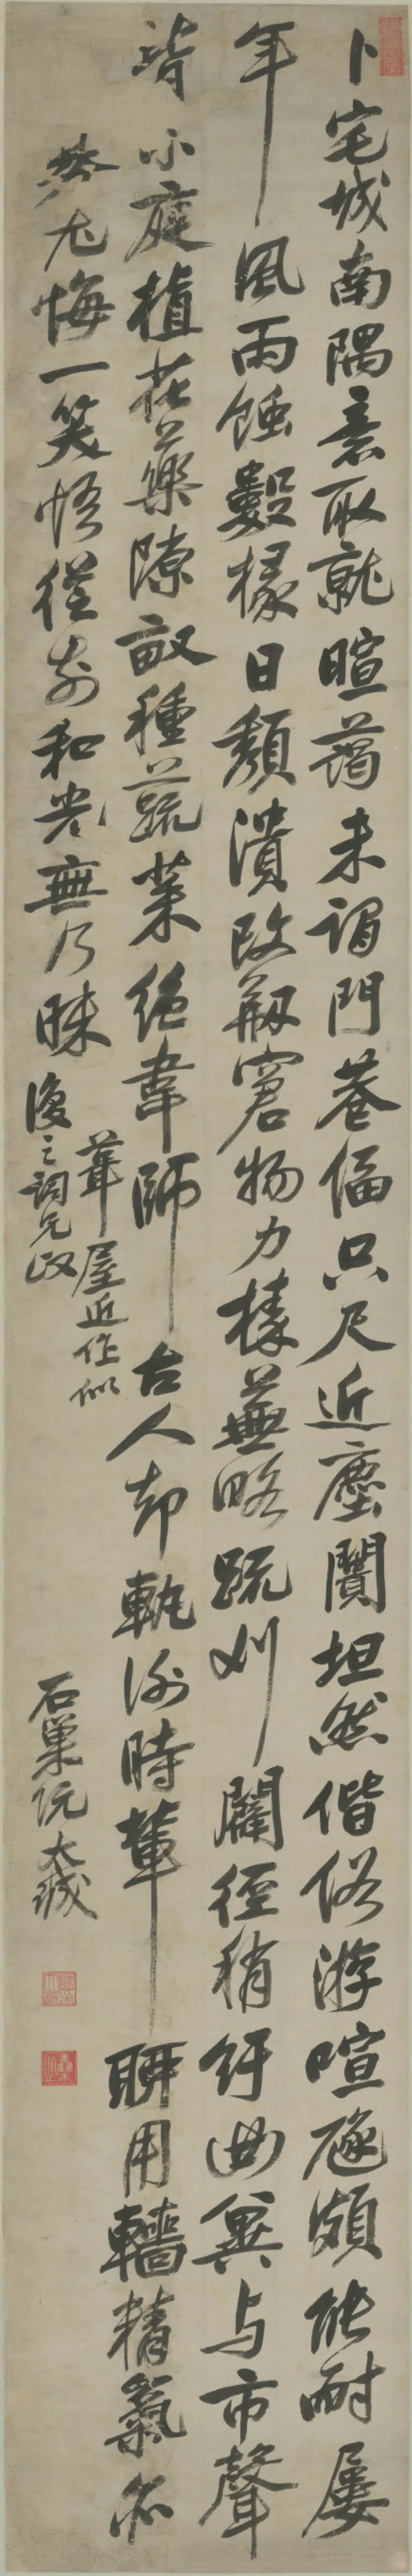 卜宅城南隅意取就暄藹未謂門巷偪只尺近塵闠坦然偕俗游喧豗頗能耐屢
年風雨蝕數椽日頹潰改剏窘物力榛蕪略疏刈闢徑稍紆曲冀与市聲
背小庭植花藥隙畝種蔬菜絶韋師古人却軌謝時輩聊用轖精氣亦
無尤悔一笑悟從前和光無乃昧
葺屋近作似
復之詞兄政
石巢阮大鋮